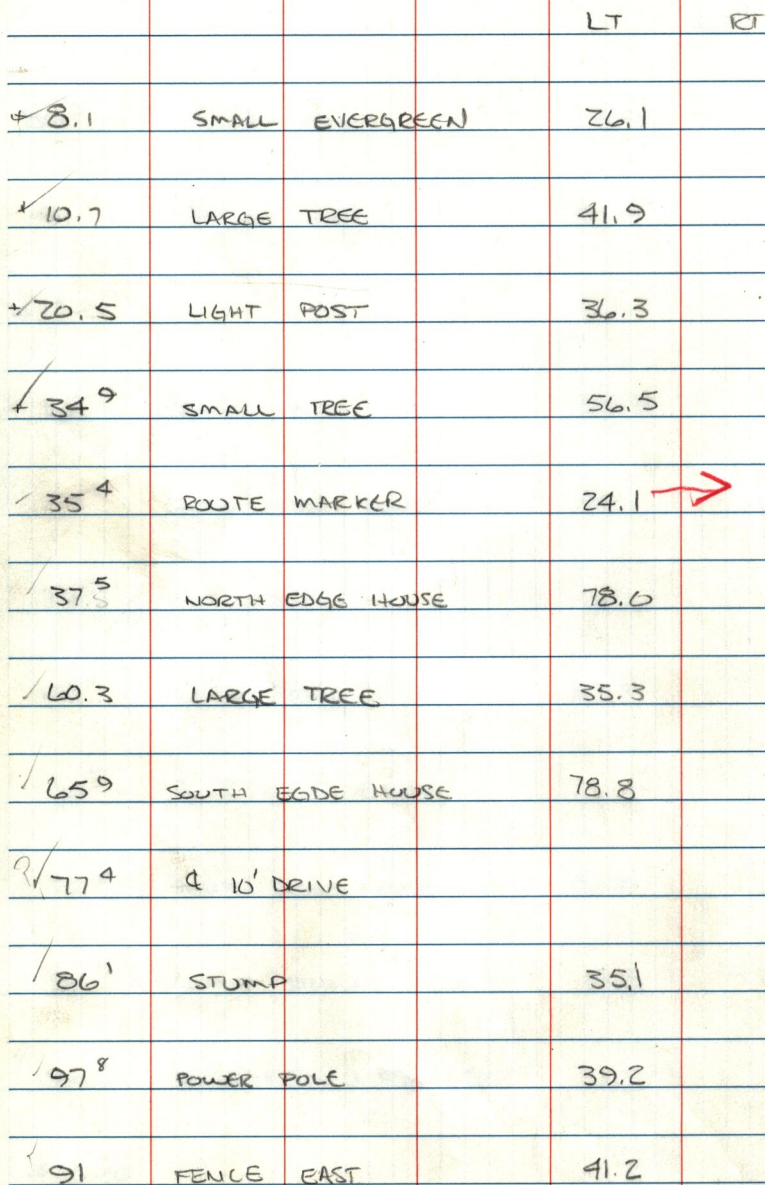 LT RT
+ 8.1 SMALL EVERGREEN 26.1
+ 10.7 LARGE TREE 41.9
+ 20.5 LIGHT POST 36.3
+ 34⁹ SMALL TREE 56.5
35⁴ ROUTE MARKER 24.1 →
37⁵ NORTH EDGE HOUSE 78.0
60.3 LARGE TREE 35.3
65⁹ SOUTH EGDE HOUSE 78.8
77⁴ ℄ 10' DRIVE
86¹ STUMP 35.1
97⁸ POWER POLE 39.2
91 FENCE EAST 41.2